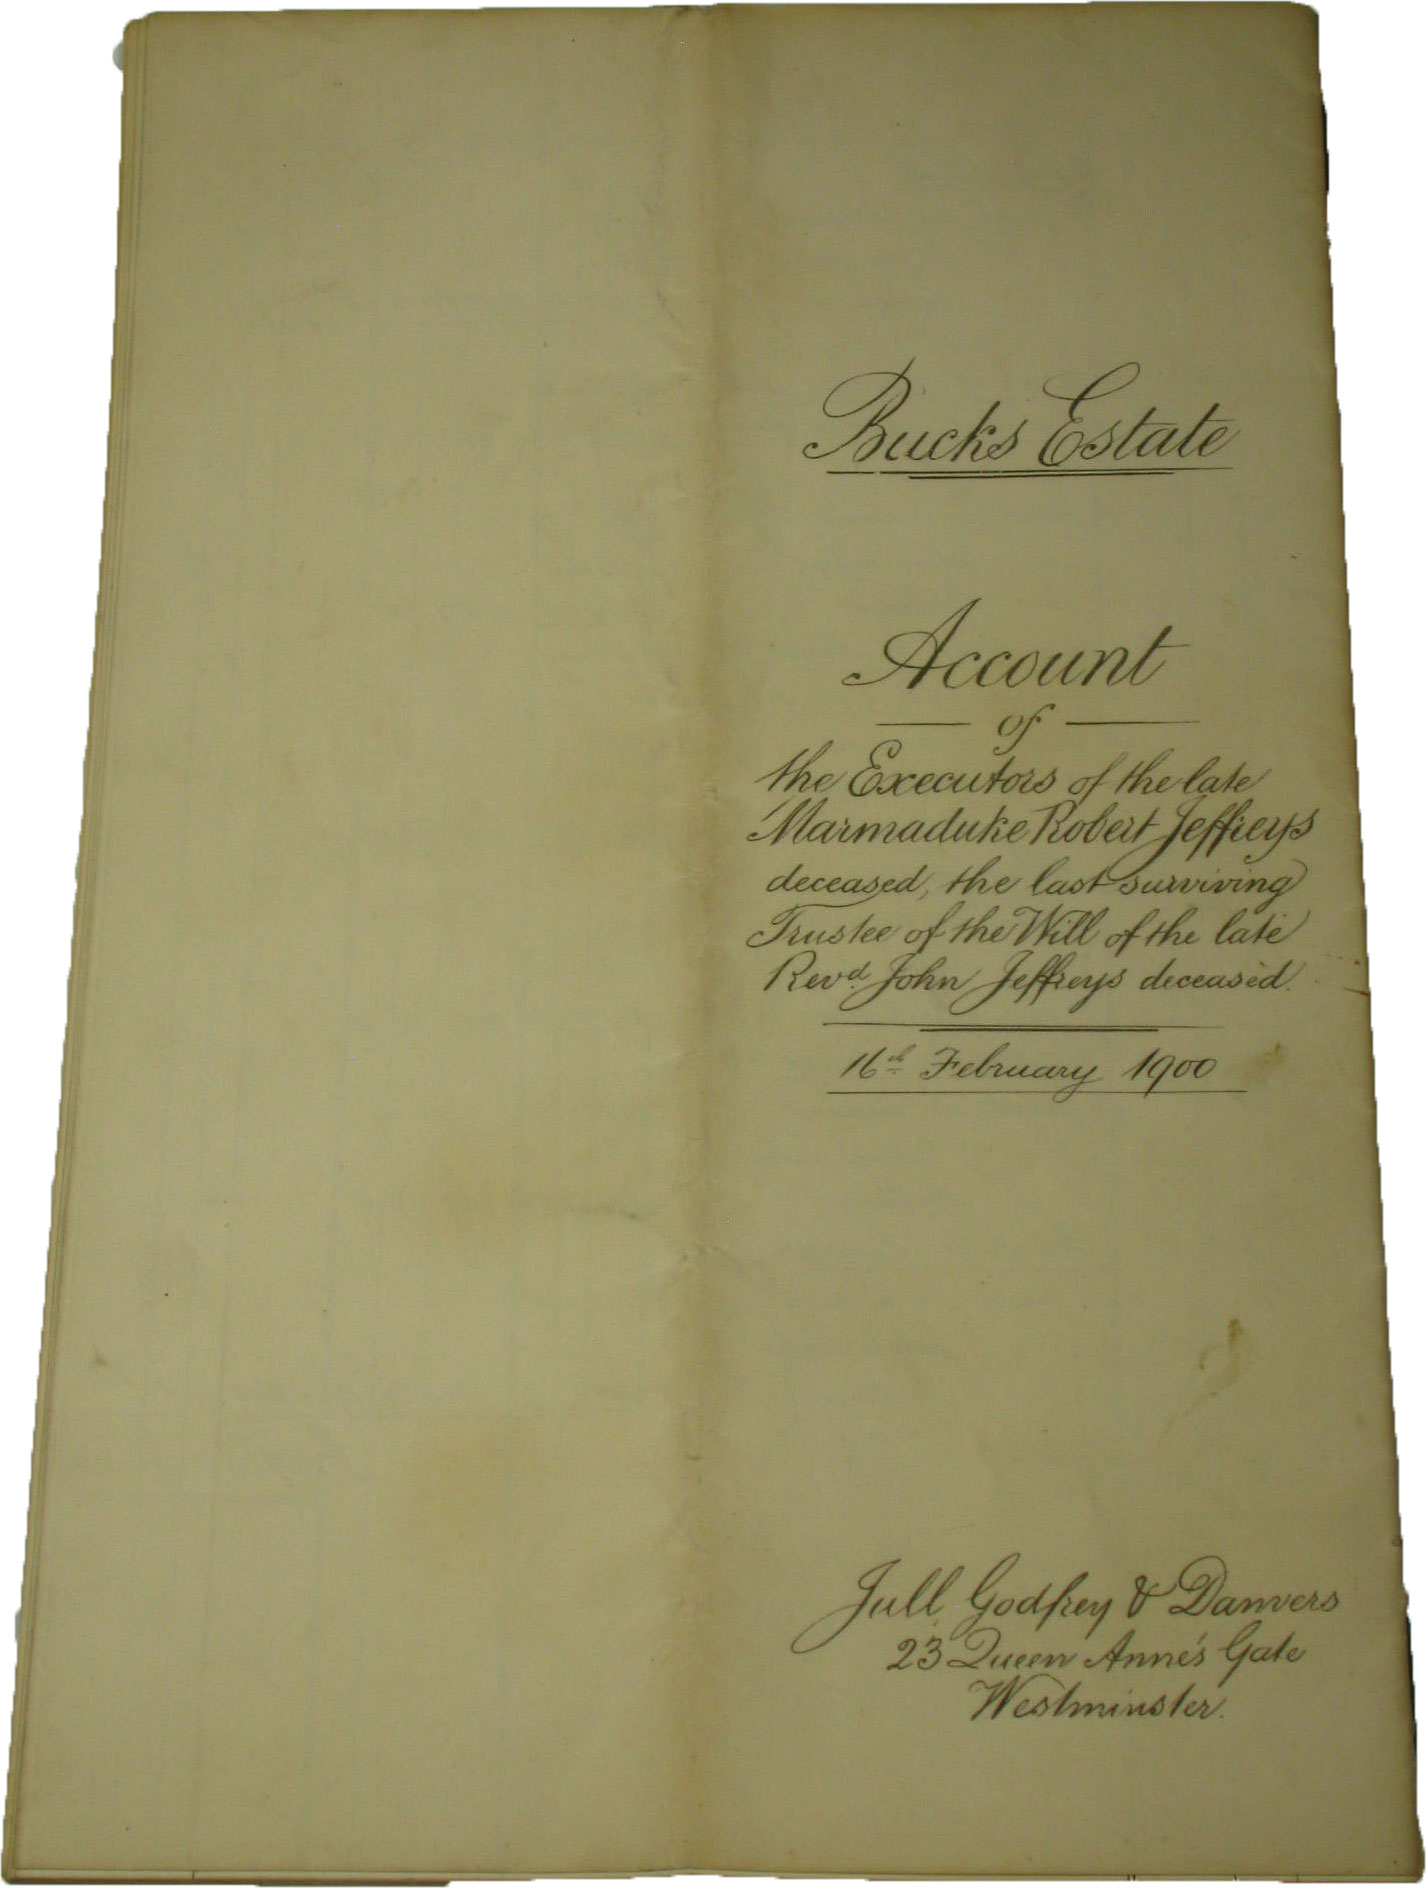 Bucks Estate
Account
of
the Executors of the late
Marmaduke Robert Jeffreys
deceased, the last surviving
Trustee of the Will of the late
Revd. John Jeffreys deceased.
16th February 1900
Jull Godfrey & Danvers
23 Queen Anne's Gate
Westminster.